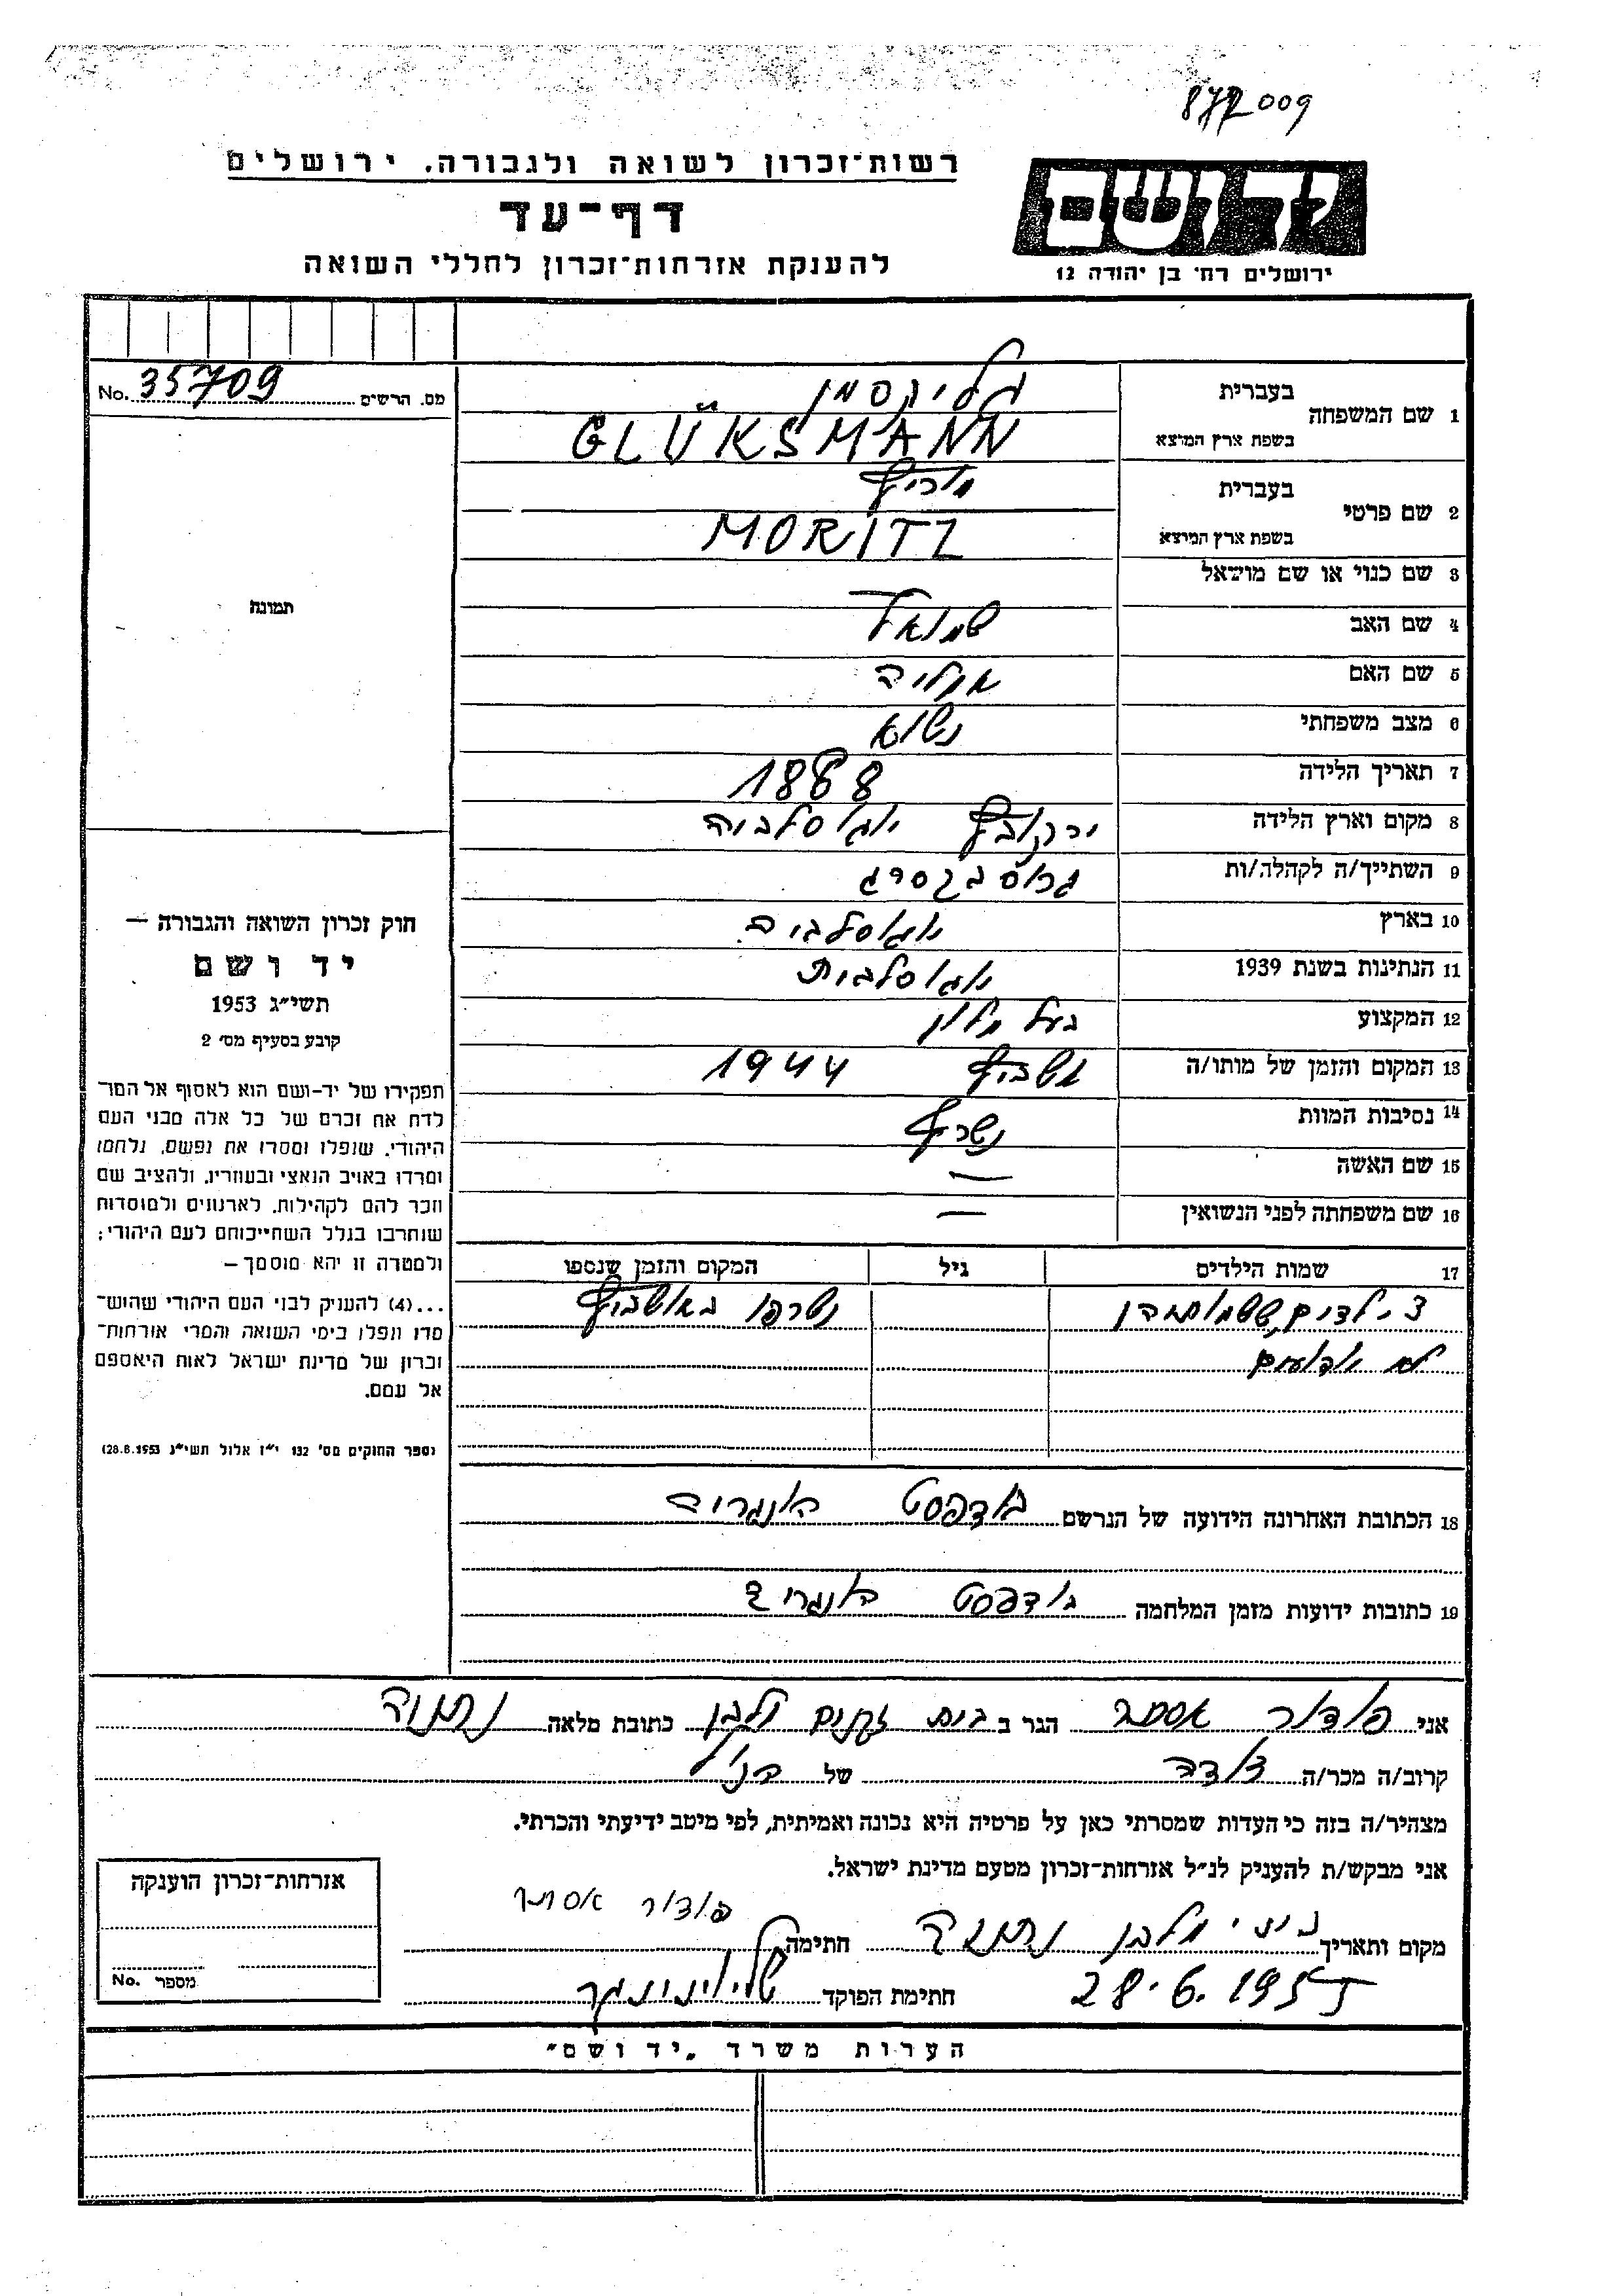 872009
רשות־זכרון לשואה ולגבורה, ירושלים
דף־עד
להענקת אזרחות־זכרון לחללי השואה
יד ושם
ירושלים רח׳ בן יהודה 12
No. 35709 מס. הרשים
1 שם המשפחה
בעברית גליקסמן
בשפת ארץ המוצא GLÜKSMANN
2 שם פרטי
בעברית מוריץ
בשפת ארץ המוצא MORITZ
3 שם כנוי או שם מושאל
4 שם האב שמואל
5 שם האם אמליה
6 מצב משפחתי נשוא
7 תאריך הלידה 1888
8 מקום וארץ הלידה יוגוסלביה
9 השתייך/ה לקהלה/ות
10 בארץ יוגוסלביה
11 הנתינות בשנת 1939 יוגוסלבית
12 המקצוע בעל מלון
13 המקום והזמן של מותו/ה אושביץ 1944
14 נסיבות המוות נשרף
15 שם האשה —
16 שם משפחתה לפני הנשואין —
17 שמות הילדים גיל המקום והזמן שנספו
ילדים ששמותיהן נשרפו באושביץ
לא ידועים
18 הכתובת האחרונה הידועה של הנרשם בודפסט הונגריה
19 כתובות ידועות מזמן המלחמה בודפסט הונגריה
תמונה
חוק זכרון השואה והגבורה —
יד ושם
תשי״ג 1953
קובע בסעיף מס׳ 2
תפקידו של יד־ושם הוא לאסוף אל המו־
לדת את זכרם של כל אלה מבני העם
היהודי, שנפלו ומסרו את נפשם, נלחמו
ומרדו באויב הנאצי ובעוזריו, ולהציב שם
וזכר להם לקהילות, לארגונים ולמוסדות
שנחרבו בגלל השתייכותם לעם היהודי;
ולמטרה זו יהא מוסמך —
...(4) להעניק לבני העם היהודי שהוש־
מדו ונפלו בימי השואה והמרי אזרחות־
זכרון של מדינת ישראל לאות היאספם
אל עמם.
(ספר החוקים מס׳ 132 י״ז אלול תשי״ג 28.8.1953)
אני פודור אסתר הגר ב בית זקנים מלבן כתובת מלאה נתניה
קרוב/ה מכר/ה דודה של הנ״ל
מצהיר/ה בזה כי העדות שמסרתי כאן על פרטיה היא נכונה ואמיתית, לפי מיטב ידיעתי והכרתי.
אני מבקש/ת להעניק לנ״ל אזרחות־זכרון מטעם מדינת ישראל.
מקום ותאריך מלבן נתניה חתימה פודור אסתר
28.6.1955 חתימת הפוקד
אזרחות־זכרון הוענקה
מספר No.
הערות משרד „יד ושם״